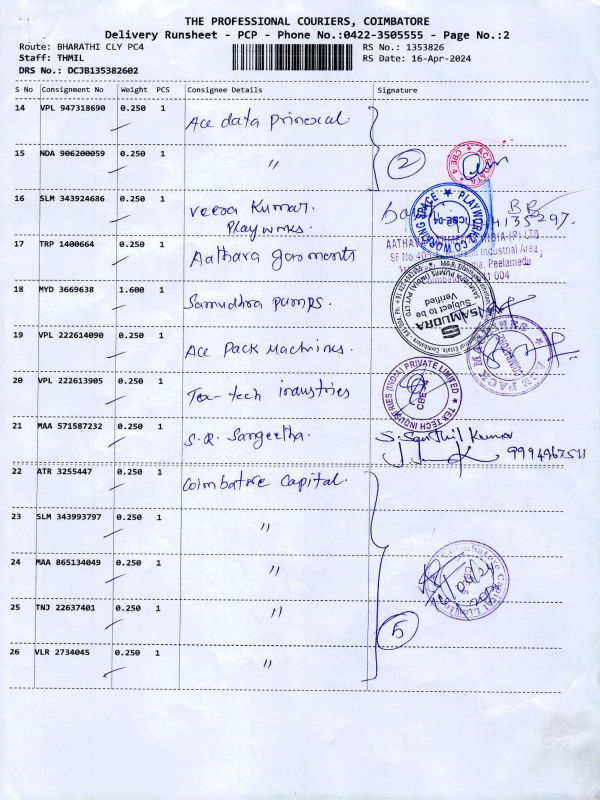 THE PROFESSIONAL COURIERS, COIMBATORE
Delivery Runsheet - PCP - Phone No.:0422-3505555 - Page No.:2
Route: BHARATHI CLY PC4
RS No.: 1353826
Staff: THMIL
RS Date: 16-Apr-2024
DRS No.: DCJB135382602
S No Consignment No Weight PCS Consignee Details Signature
14 VPL 947318690 0.250 1 Ace data
15 NDA 906200059 0.250 1 "
2
ACE DATA
CBE-4
16 SLM 343924686 0.250 1 Veera Kumar.
Playworks.
PLAYWORKZ.CO WORKING SPACE
CBE-04
17 TRP 1400664 0.250 1 Aathava garments
18 MYD 3669638 1.600 1 Samudhra pumps.
SAMUDRA
Subject to be
Verified
19 VPL 222614090 0.250 1 Ace Pack Machines.
20 VPL 222613905 0.250 1 Tex-tech industries
TEX TECH INDUSTRIES (INDIA) PRIVATE LIMITED
21 MAA 571587232 0.250 1 S.R. Sangeetha.
S. Senthil Kumar
22 ATR 3255447 0.250 1 Coimbatore Capital.
23 SLM 343993797 0.250 1 "
24 MAA 865134049 0.250 1 "
25 TNJ 22637401 0.250 1 "
26 VLR 2734045 0.250 1 "
5